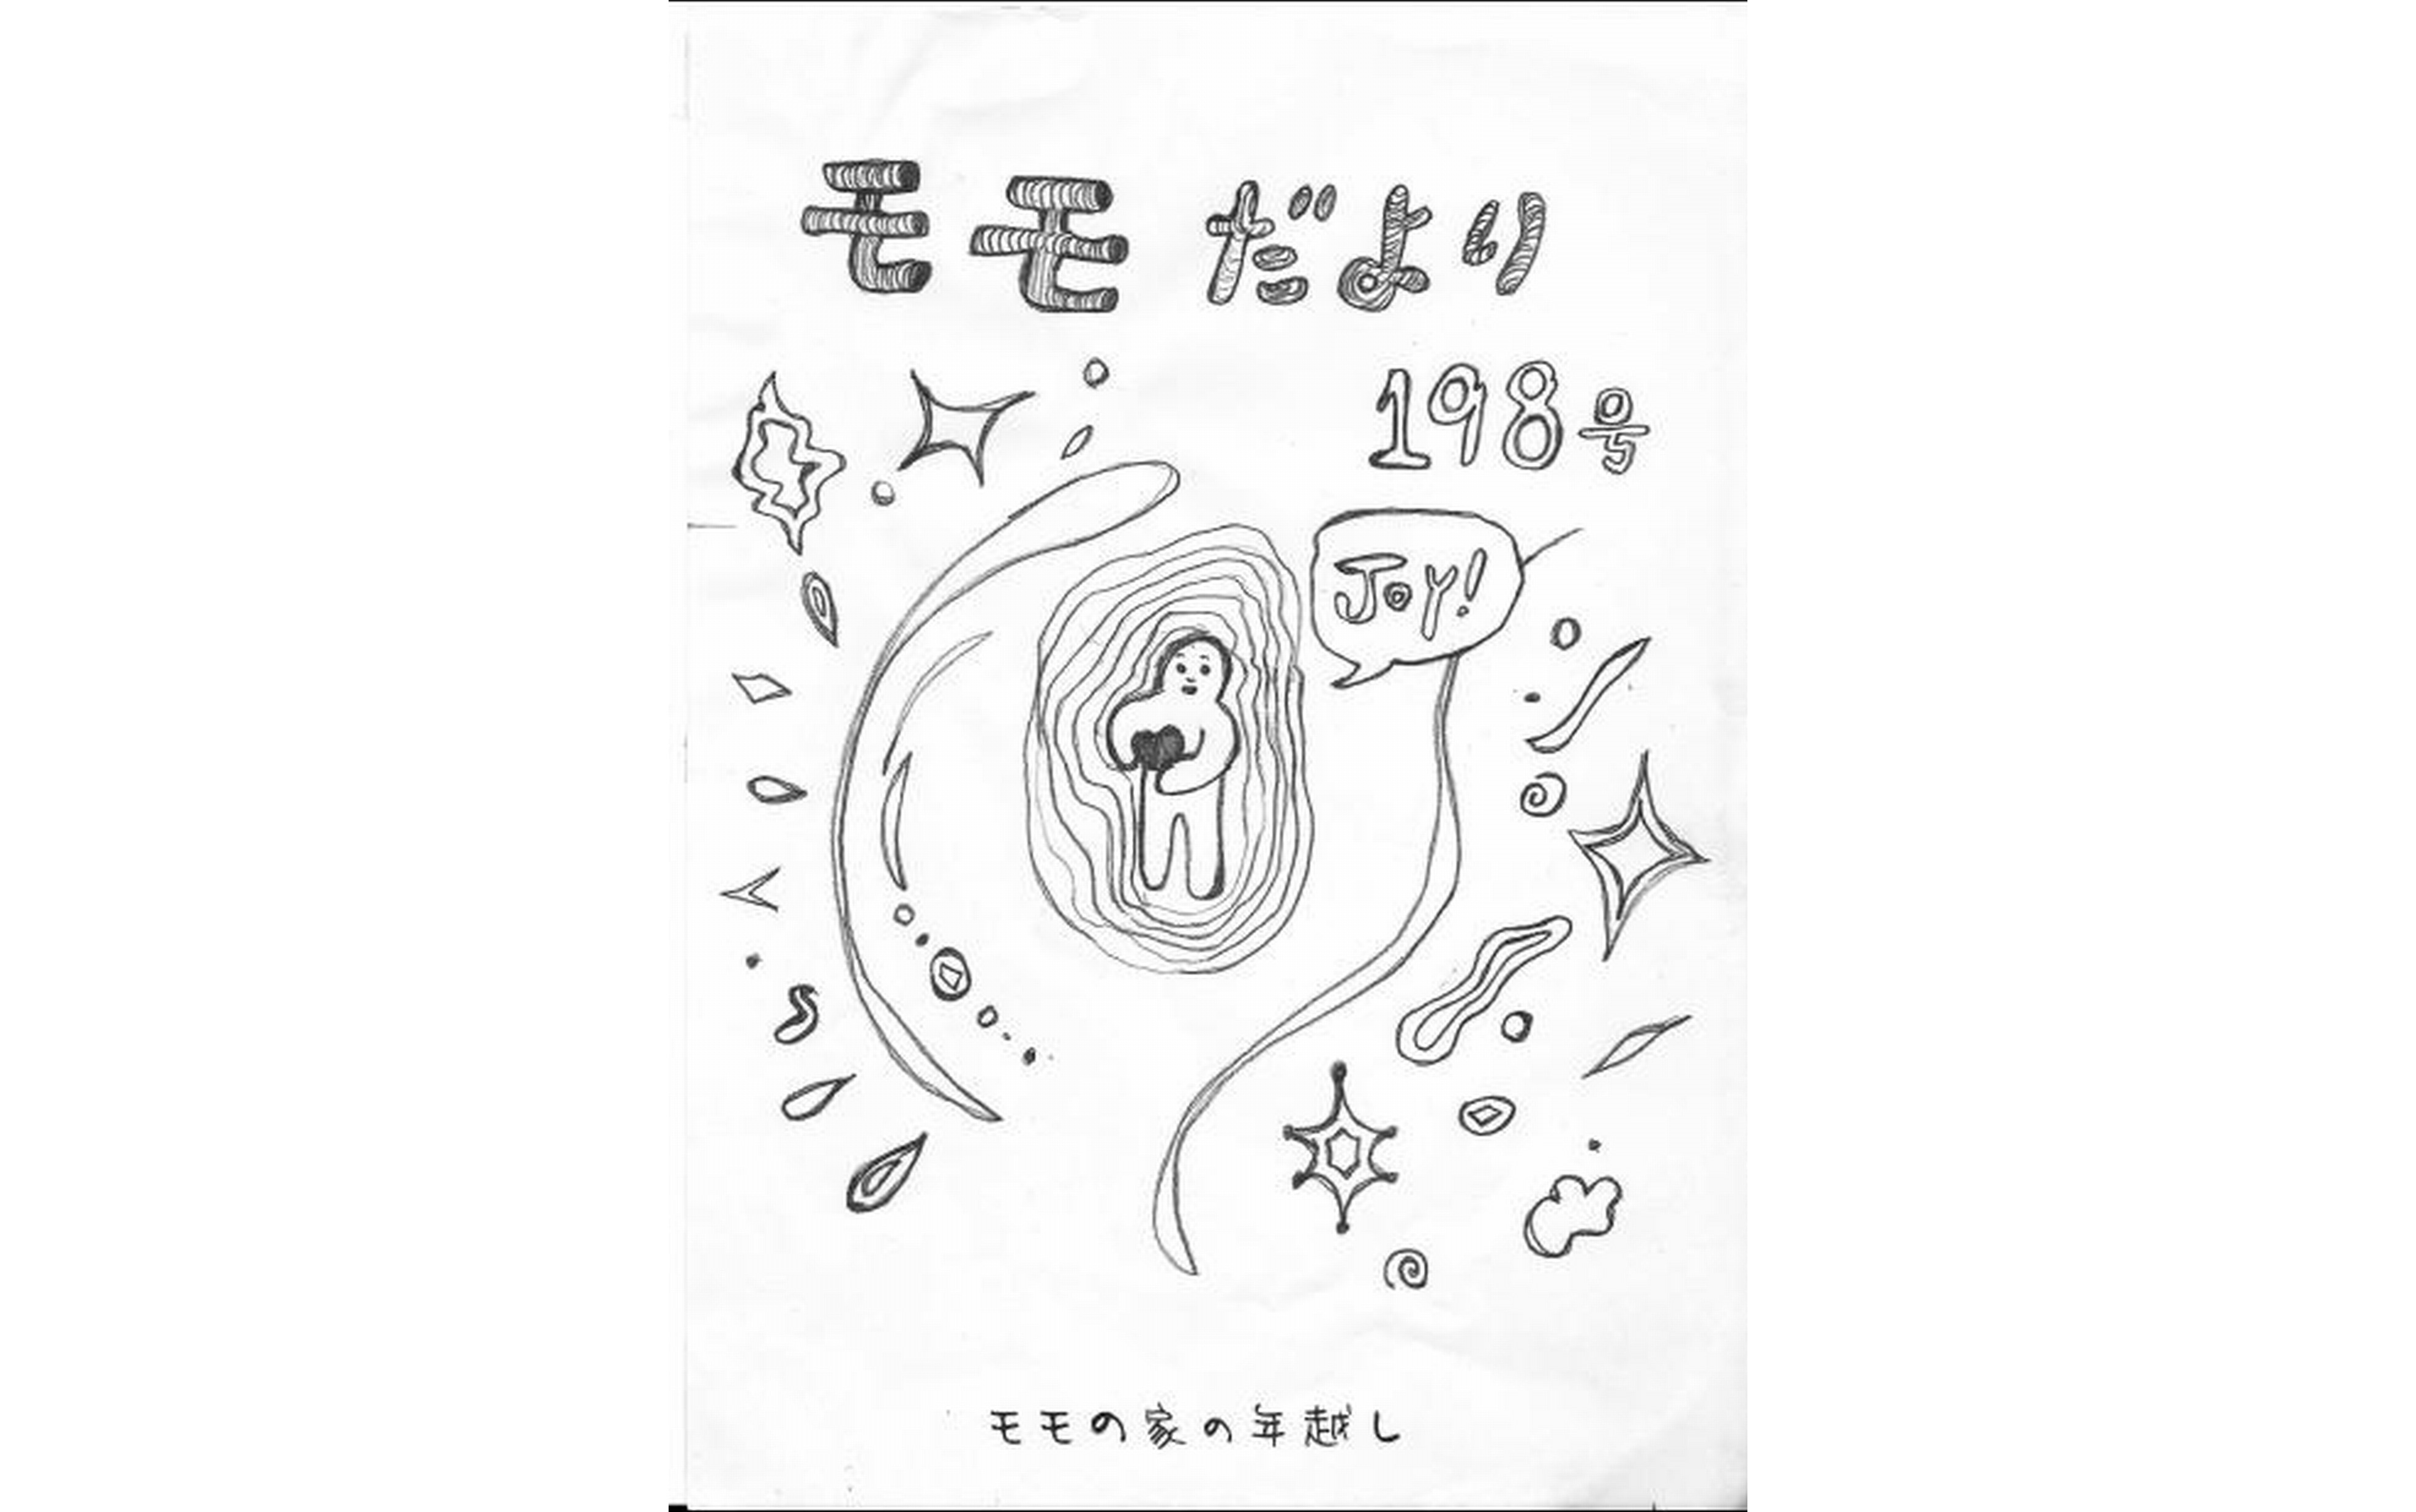 モモだより
198号
Joy!
モモの家の年越し